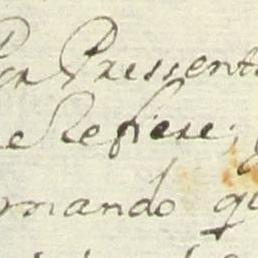 Por Pressent
se Refiere;
rnando q